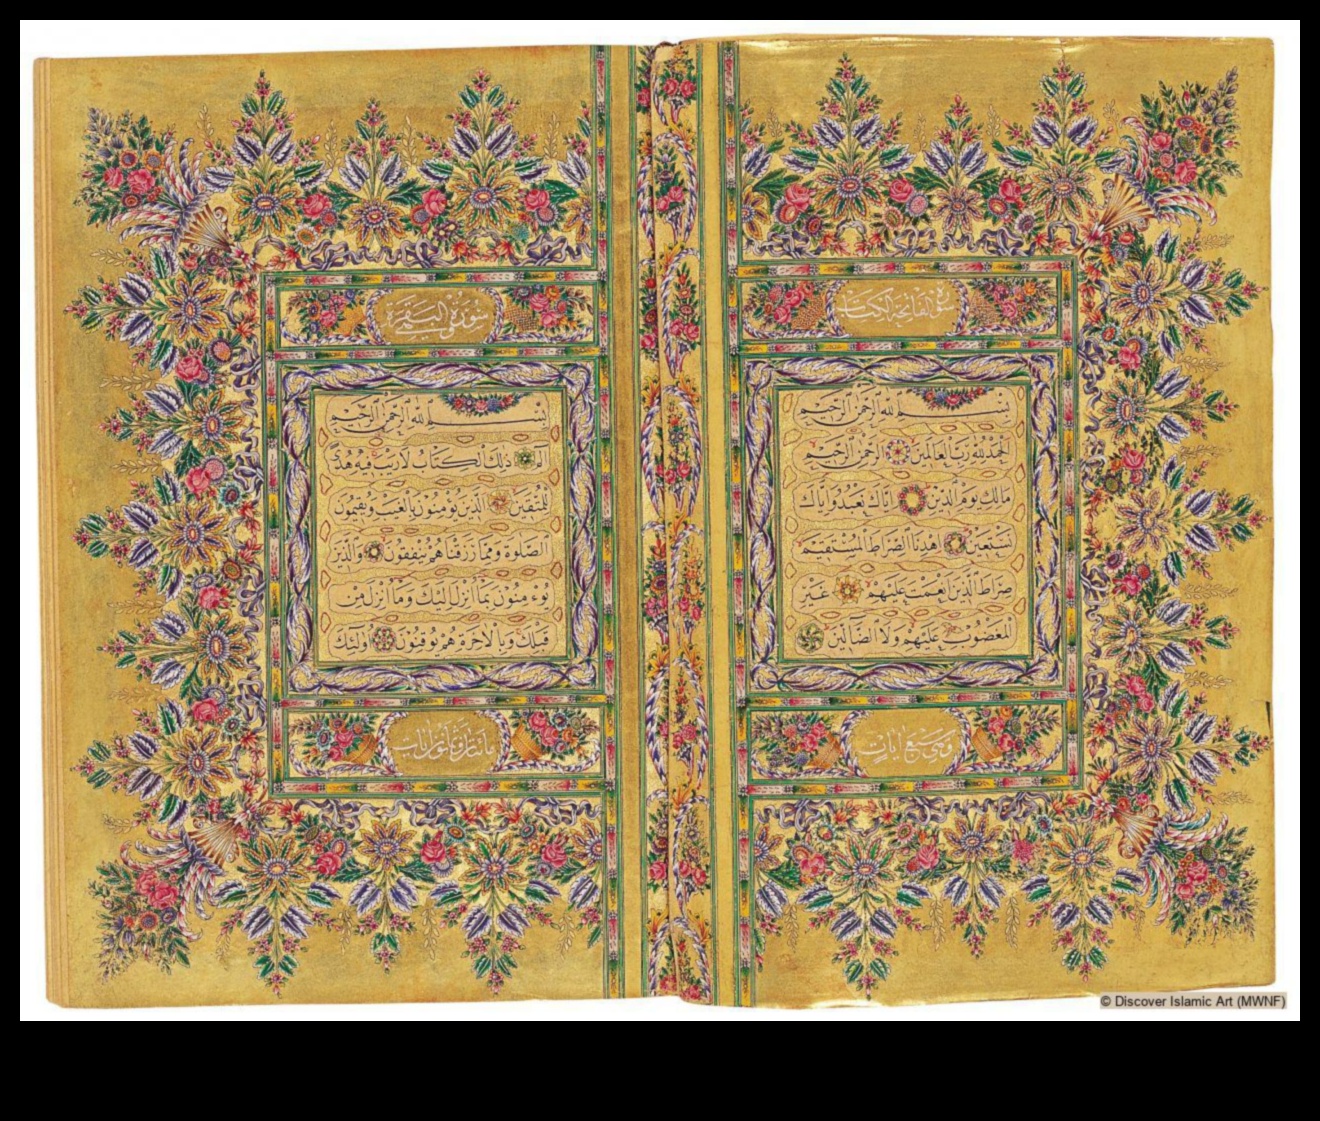 سورة فاتحة الكتاب
بسم الله الرحمن الرحيم
الحمد لله رب العالمين الرحمن الرحيم
مالك يوم الدين اياك نعبد واياك
نستعين اهدنا الصراط المستقيم
صراط الذين انعمت عليهم غير
المغضوب عليهم ولا الضالين
وهي سبع ايات
سورة البقرة
بسم الله الرحمن الرحيم
الم ذلك الكتاب لا ريب فيه هدى
للمتقين الذين يؤمنون بالغيب ويقيمون
الصلوة ومما رزقناهم ينفقون والذين
يؤمنون بما أنزل اليك وما أنزل من
قبلك وبالاخرة هم يوقنون اولئك
© Discover Islamic Art (MWNF)